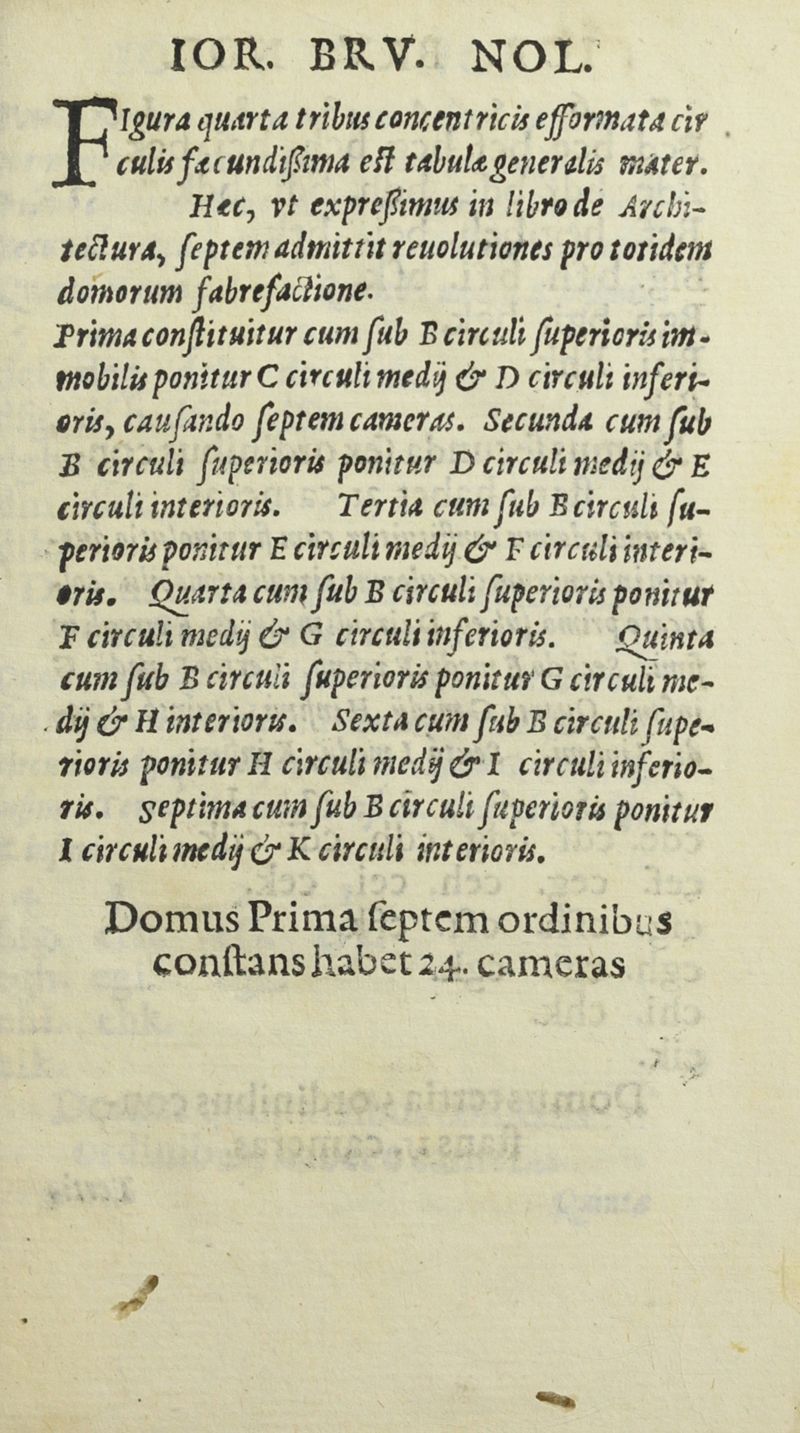 IOR. BRV. NOL.
FIgura quarta tribus concentricis efformata cir
culis fæcundißima est tabulæ generalis mater.
Hæc, vt expreßimus in libro de Archi-
tectura, ſeptem admittit reuolutiones pro totidem
domorum fabrefactione.
Prima conſtituitur cum ſub B circuli ſuperioris im-
mobilis ponitur C circuli medij & D circuli inferi-
oris, cauſando ſeptem cameras. Secunda cum ſub
B circuli ſuperioris ponitur D circuli medij & E
circuli interioris. Tertia cum ſub B circuli ſu-
perioris ponitur E circuli medij & F circuli interi-
oris. Quarta cum ſub B circuli ſuperioris ponitur
F circuli medij & G circuli inferioris. Quinta
cum ſub B circuli ſuperioris ponitur G circuli me-
dij & H interioris. Sexta cum ſub B circuli ſupe-
rioris ponitur H circuli medij & I circuli inferio-
ris. Septima cum ſub B circuli ſuperioris ponitur
I circuli medij & K circuli interioris.
Domus Prima ſeptem ordinibus
conſtans habet 24. cameras